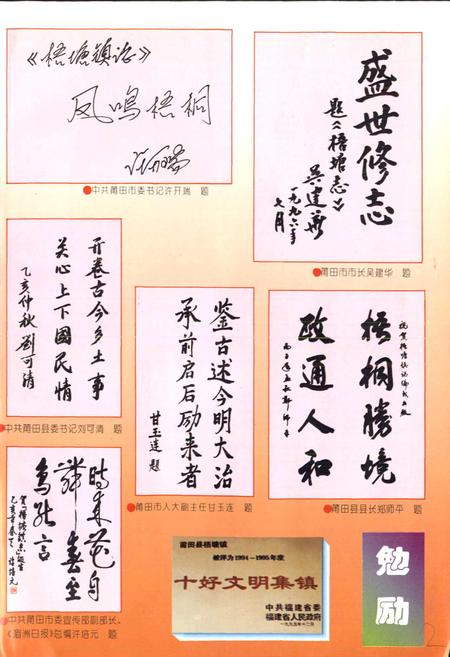 《梧塘镇志》
凤鸣梧桐
许开瑞
●中共莆田市委书记许开瑞 题
盛世修志
题《梧塘志》
吴建华
一九九六年
七月
●莆田市市长吴建华 题
开卷古今乡土事
关心上下国民情
乙亥仲秋刘可清
●中共莆田县委书记刘可清 题
鉴古述今明大治
承前启后励来者
甘玉连 题
●莆田市人大副主任甘玉连 题
祝贺梧塘镇志编成出版
梧桐胜境
政通人和
●莆田县县长郑师平 题
时来花自
舞春至
鸟能言
贺《梧塘镇志》诞生
许培元
●中共莆田市委宣传部副部长、
《湄洲日报》总编许培元 题
莆田县梧塘镇
被评为1994—1995年度
十好文明集镇
中共福建省委
福建省人民政府
一九九五年十二月
勉励